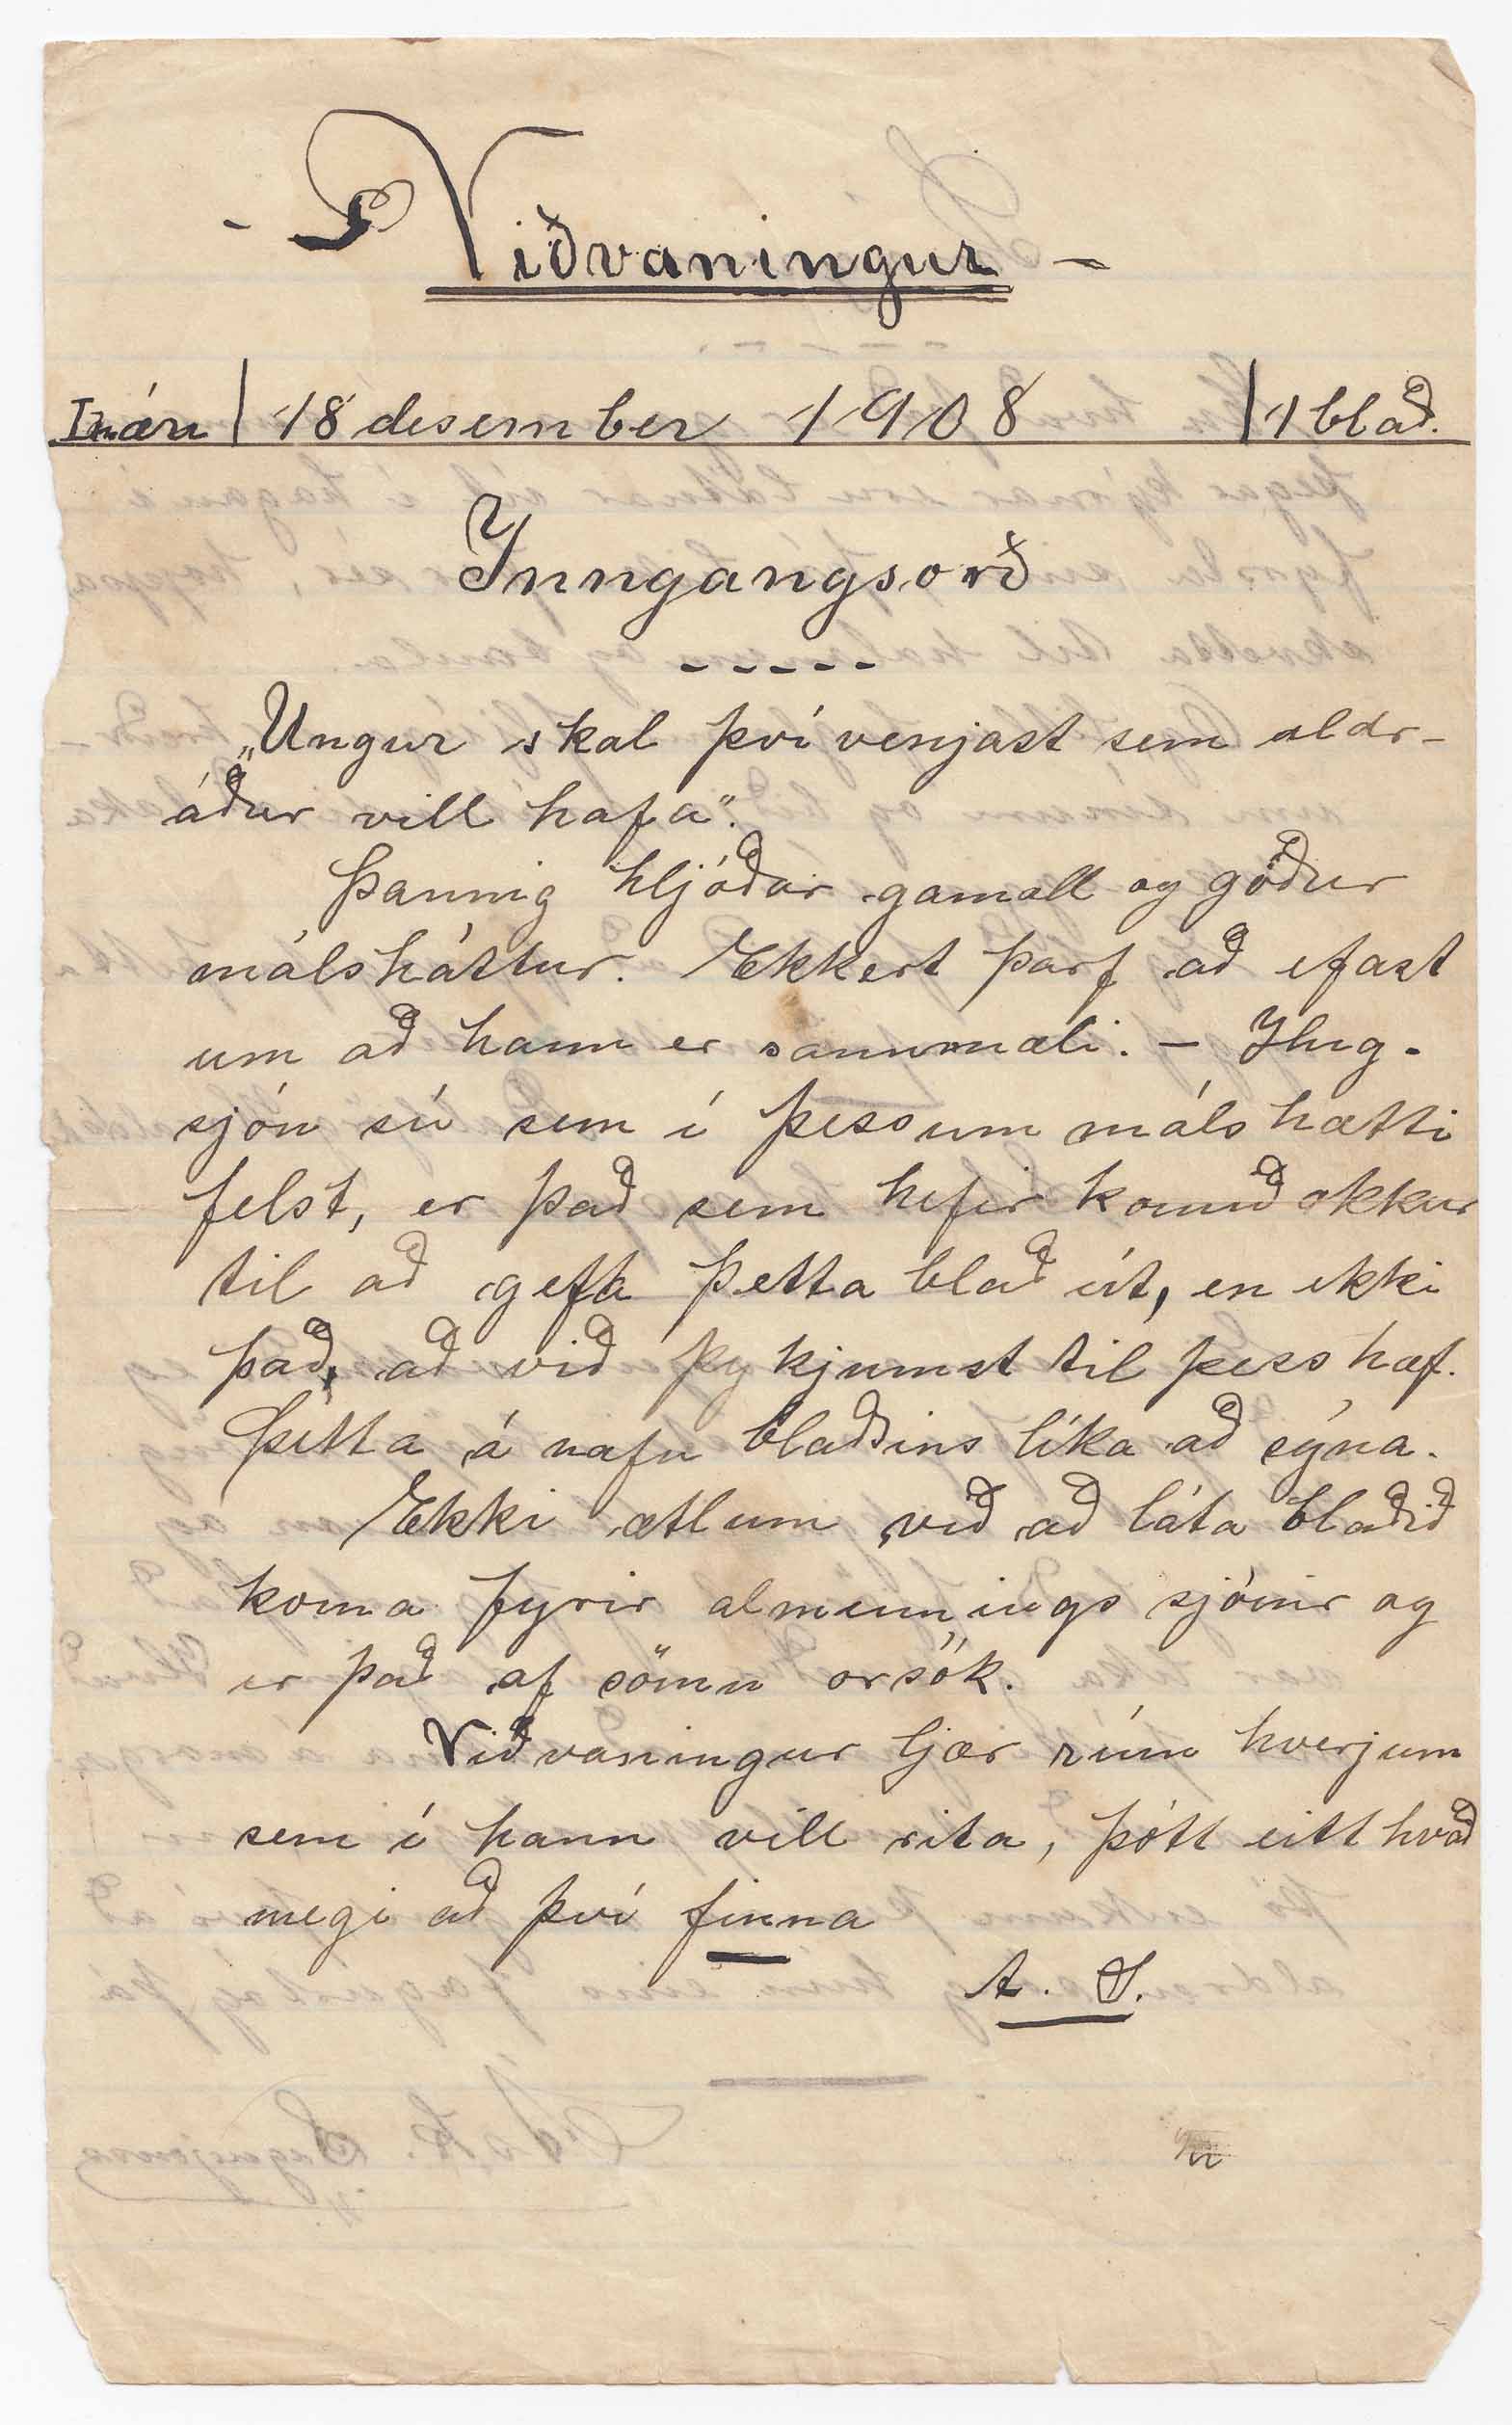 - Viðvaningur -
I. árn | 18 desember 1908 | 1 blað.
Inngangsorð
- - - - -
„Ungur skal því venjast sem aldr-
áður vill hafa".
Þannig hljóðar gamall og góður
málsháttur. Ekkert þarf að efast
um að hann er sannmæli. - Ihug-
sjón sú sem í þessum málshætti
felst, er það sem hefir komið okkur
til að gefa þetta blað út, en ekki
það, að við þykjumst til þess hæf.
Þetta á nafn blaðsins líka að sýna.
Ekki ætlum við að láta blaðið
koma fyrir almennings sjónir og
er það af sömu orsök.
Viðvaningur ljær rúm hverjum
sem í hann vill rita, þótt eitthvað
megi að því finna
A. S.